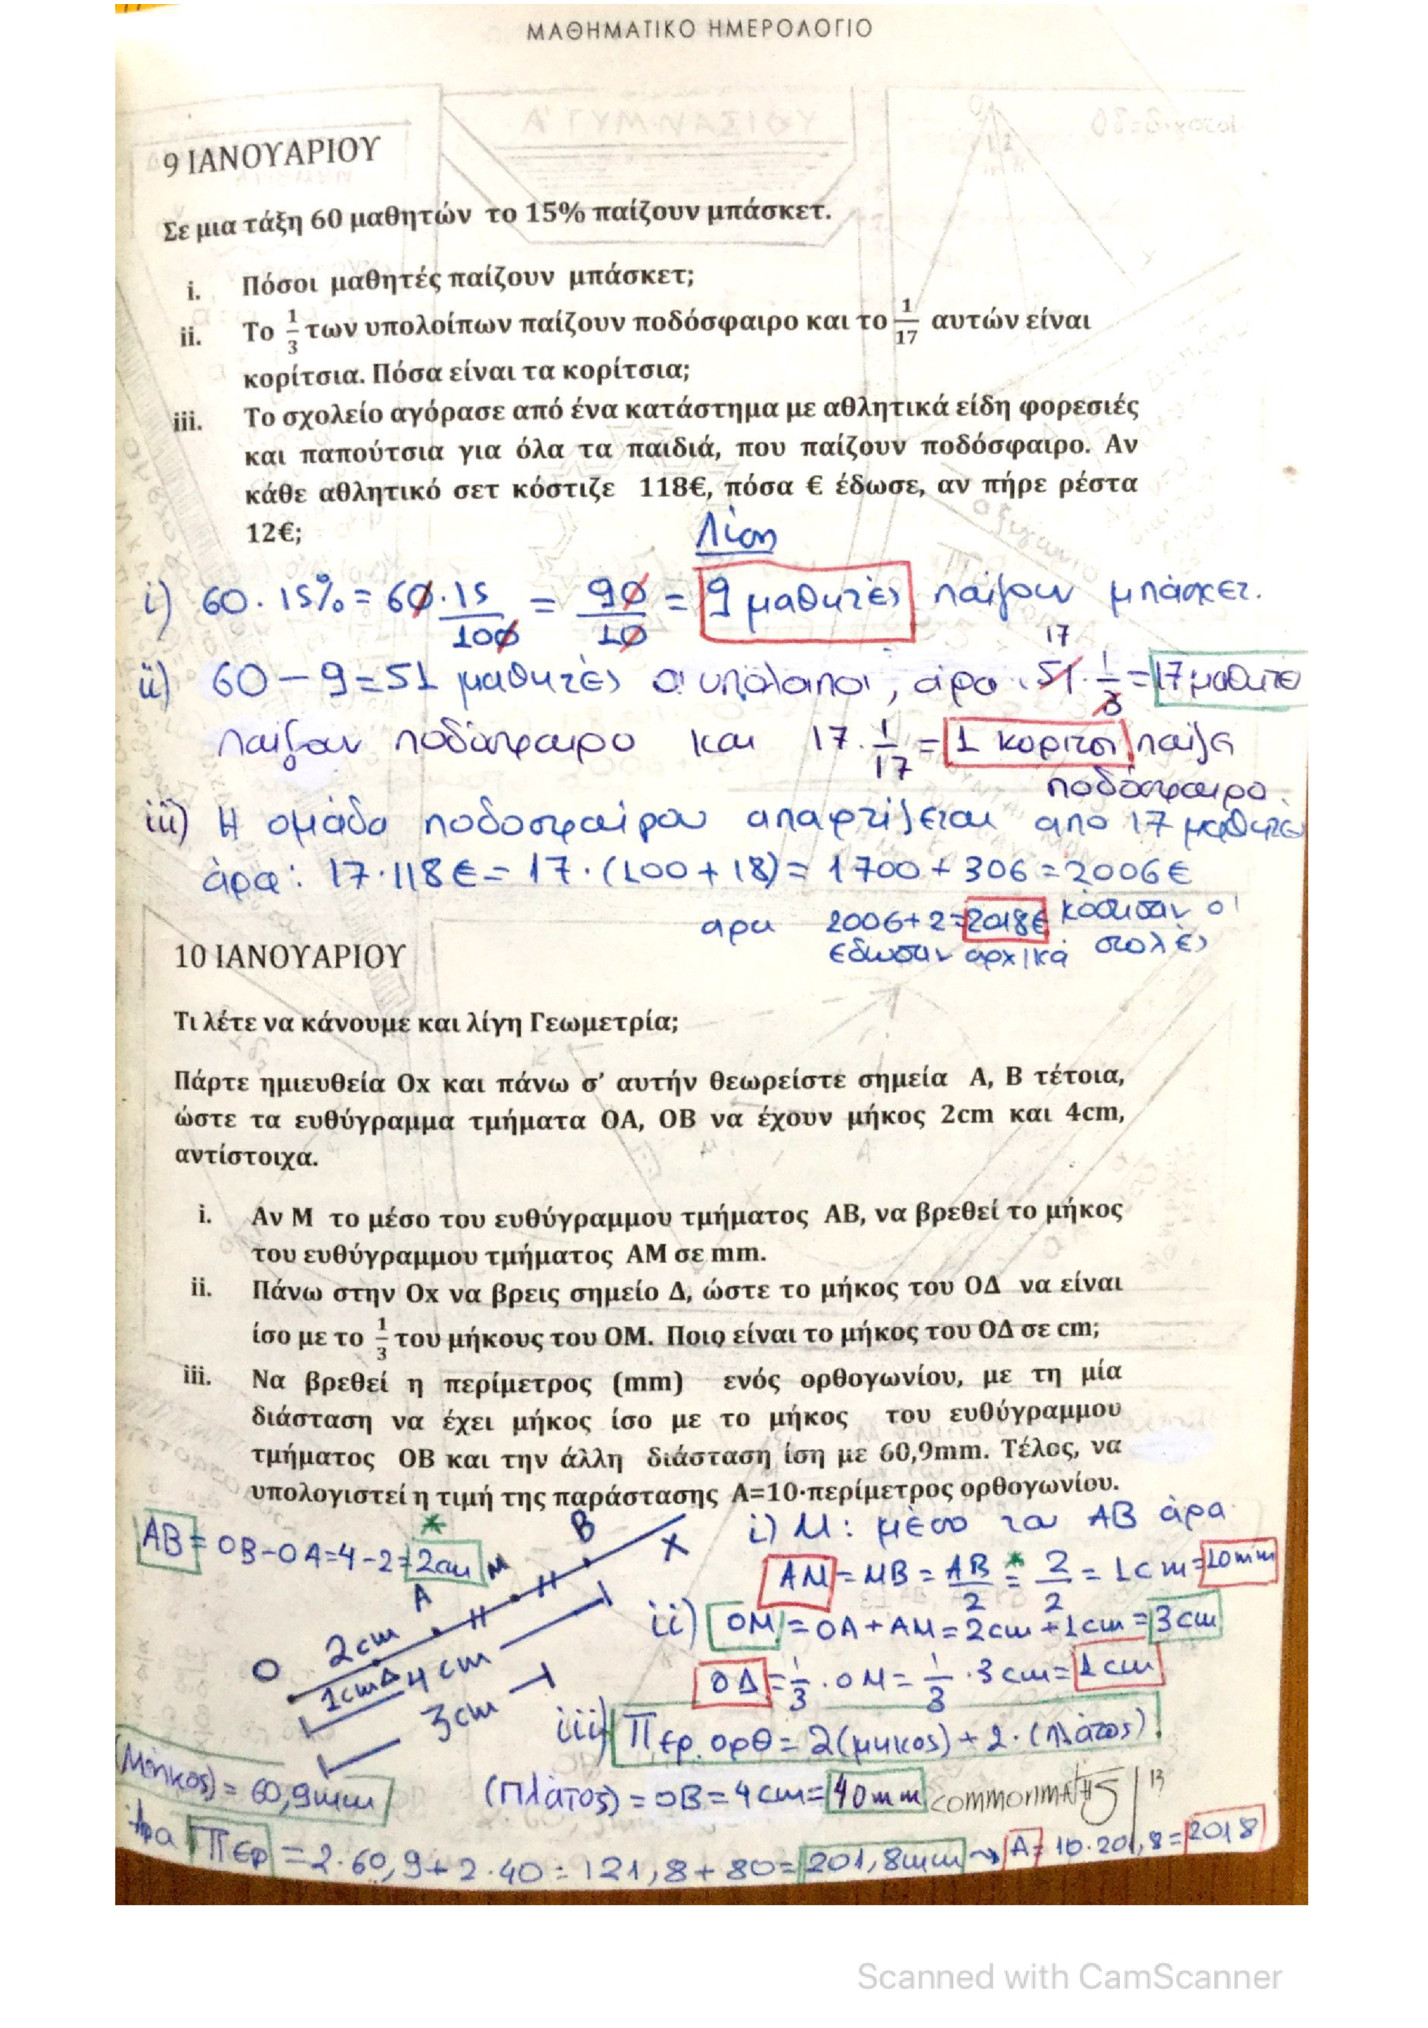 ΜΑΘΗΜΑΤΙΚΟ ΗΜΕΡΟΛΟΓΙΟ
9 ΙΑΝΟΥΑΡΙΟΥ
Σε μια τάξη 60 μαθητών το 15% παίζουν μπάσκετ.
i. Πόσοι μαθητές παίζουν μπάσκετ;
ii. Το 1/3 των υπολοίπων παίζουν ποδόσφαιρο και το 1/17 αυτών είναι
κορίτσια. Πόσα είναι τα κορίτσια;
iii. Το σχολείο αγόρασε από ένα κατάστημα με αθλητικά είδη φορεσιές
και παπούτσια για όλα τα παιδιά, που παίζουν ποδόσφαιρο. Αν
κάθε αθλητικό σετ κόστιζε 118€, πόσα € έδωσε, αν πήρε ρέστα
12€;
Λύση
i) 60 · 15% = 60 · 15/100 = 90/10 = 9 μαθητές παίζουν μπάσκετ.
ii) 60 - 9 = 51 μαθητές οι υπόλοιποι, άρα 51 · 1/3 = 17 μαθητέ
17
παίζουν ποδόσφαιρο και 17 · 1/17 = 1 κορίτσι παίζει
ποδόσφαιρο.
iii) Η ομάδα ποδοσφαίρου απαρτίζεται από 17 μαθητές
άρα: 17 · 118€ = 17 · (100 + 18) = 1700 + 306 = 2006€
κόστισαν οι
άρα 2006 + 2 = 2018€
έδωσαν αρχικά στολές
10 ΙΑΝΟΥΑΡΙΟΥ
Τι λέτε να κάνουμε και λίγη Γεωμετρία;
Πάρτε ημιευθεία Οx και πάνω σ' αυτήν θεωρείστε σημεία Α, Β τέτοια,
ώστε τα ευθύγραμμα τμήματα ΟΑ, ΟΒ να έχουν μήκος 2cm και 4cm,
αντίστοιχα.
i. Αν Μ το μέσο του ευθύγραμμου τμήματος ΑΒ, να βρεθεί το μήκος
του ευθύγραμμου τμήματος ΑΜ σε mm.
ii. Πάνω στην Οx να βρεις σημείο Δ, ώστε το μήκος του ΟΔ να είναι
ίσο με το 1/3 του μήκους του ΟΜ. Ποιο είναι το μήκος του ΟΔ σε cm;
iii. Να βρεθεί η περίμετρος (mm) ενός ορθογωνίου, με τη μία
διάσταση να έχει μήκος ίσο με το μήκος του ευθύγραμμου
τμήματος ΟΒ και την άλλη διάσταση ίση με 60,9mm. Τέλος, να
υπολογιστεί η τιμή της παράστασης Α=10·περίμετρος ορθογωνίου.
ΑΒ = ΟΒ - ΟΑ = 4 - 2 = 2cm *
Ο Δ Α Μ Β x
2cm
1cm
4cm
3cm
i) Μ: μέσο του ΑΒ άρα
ΑΜ = ΜΒ = ΑΒ/2 =* 2/2 = 1cm = 10mm
ii) ΟΜ = ΟΑ + ΑΜ = 2cm + 1cm = 3cm
ΟΔ = 1/3 · ΟΜ = 1/3 · 3cm = 1cm
iii) Περ. ορθ = 2(μήκος) + 2 · (πλάτος)
(Μήκος) = 60,9mm
(πλάτος) = ΟΒ = 4cm = 40mm
COMMONMATHS
13
άρα Περ = 2 · 60,9 + 2 · 40 = 121,8 + 80 = 201,8mm → Α = 10 · 201,8 = 2018
Scanned with CamScanner